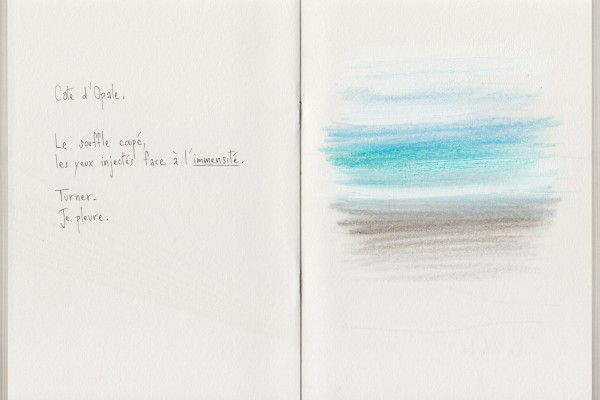 Côte d'Opale.
Le souffle coupé,
les yeux injectés face à l'immensité.
Turner.
Je pleure.